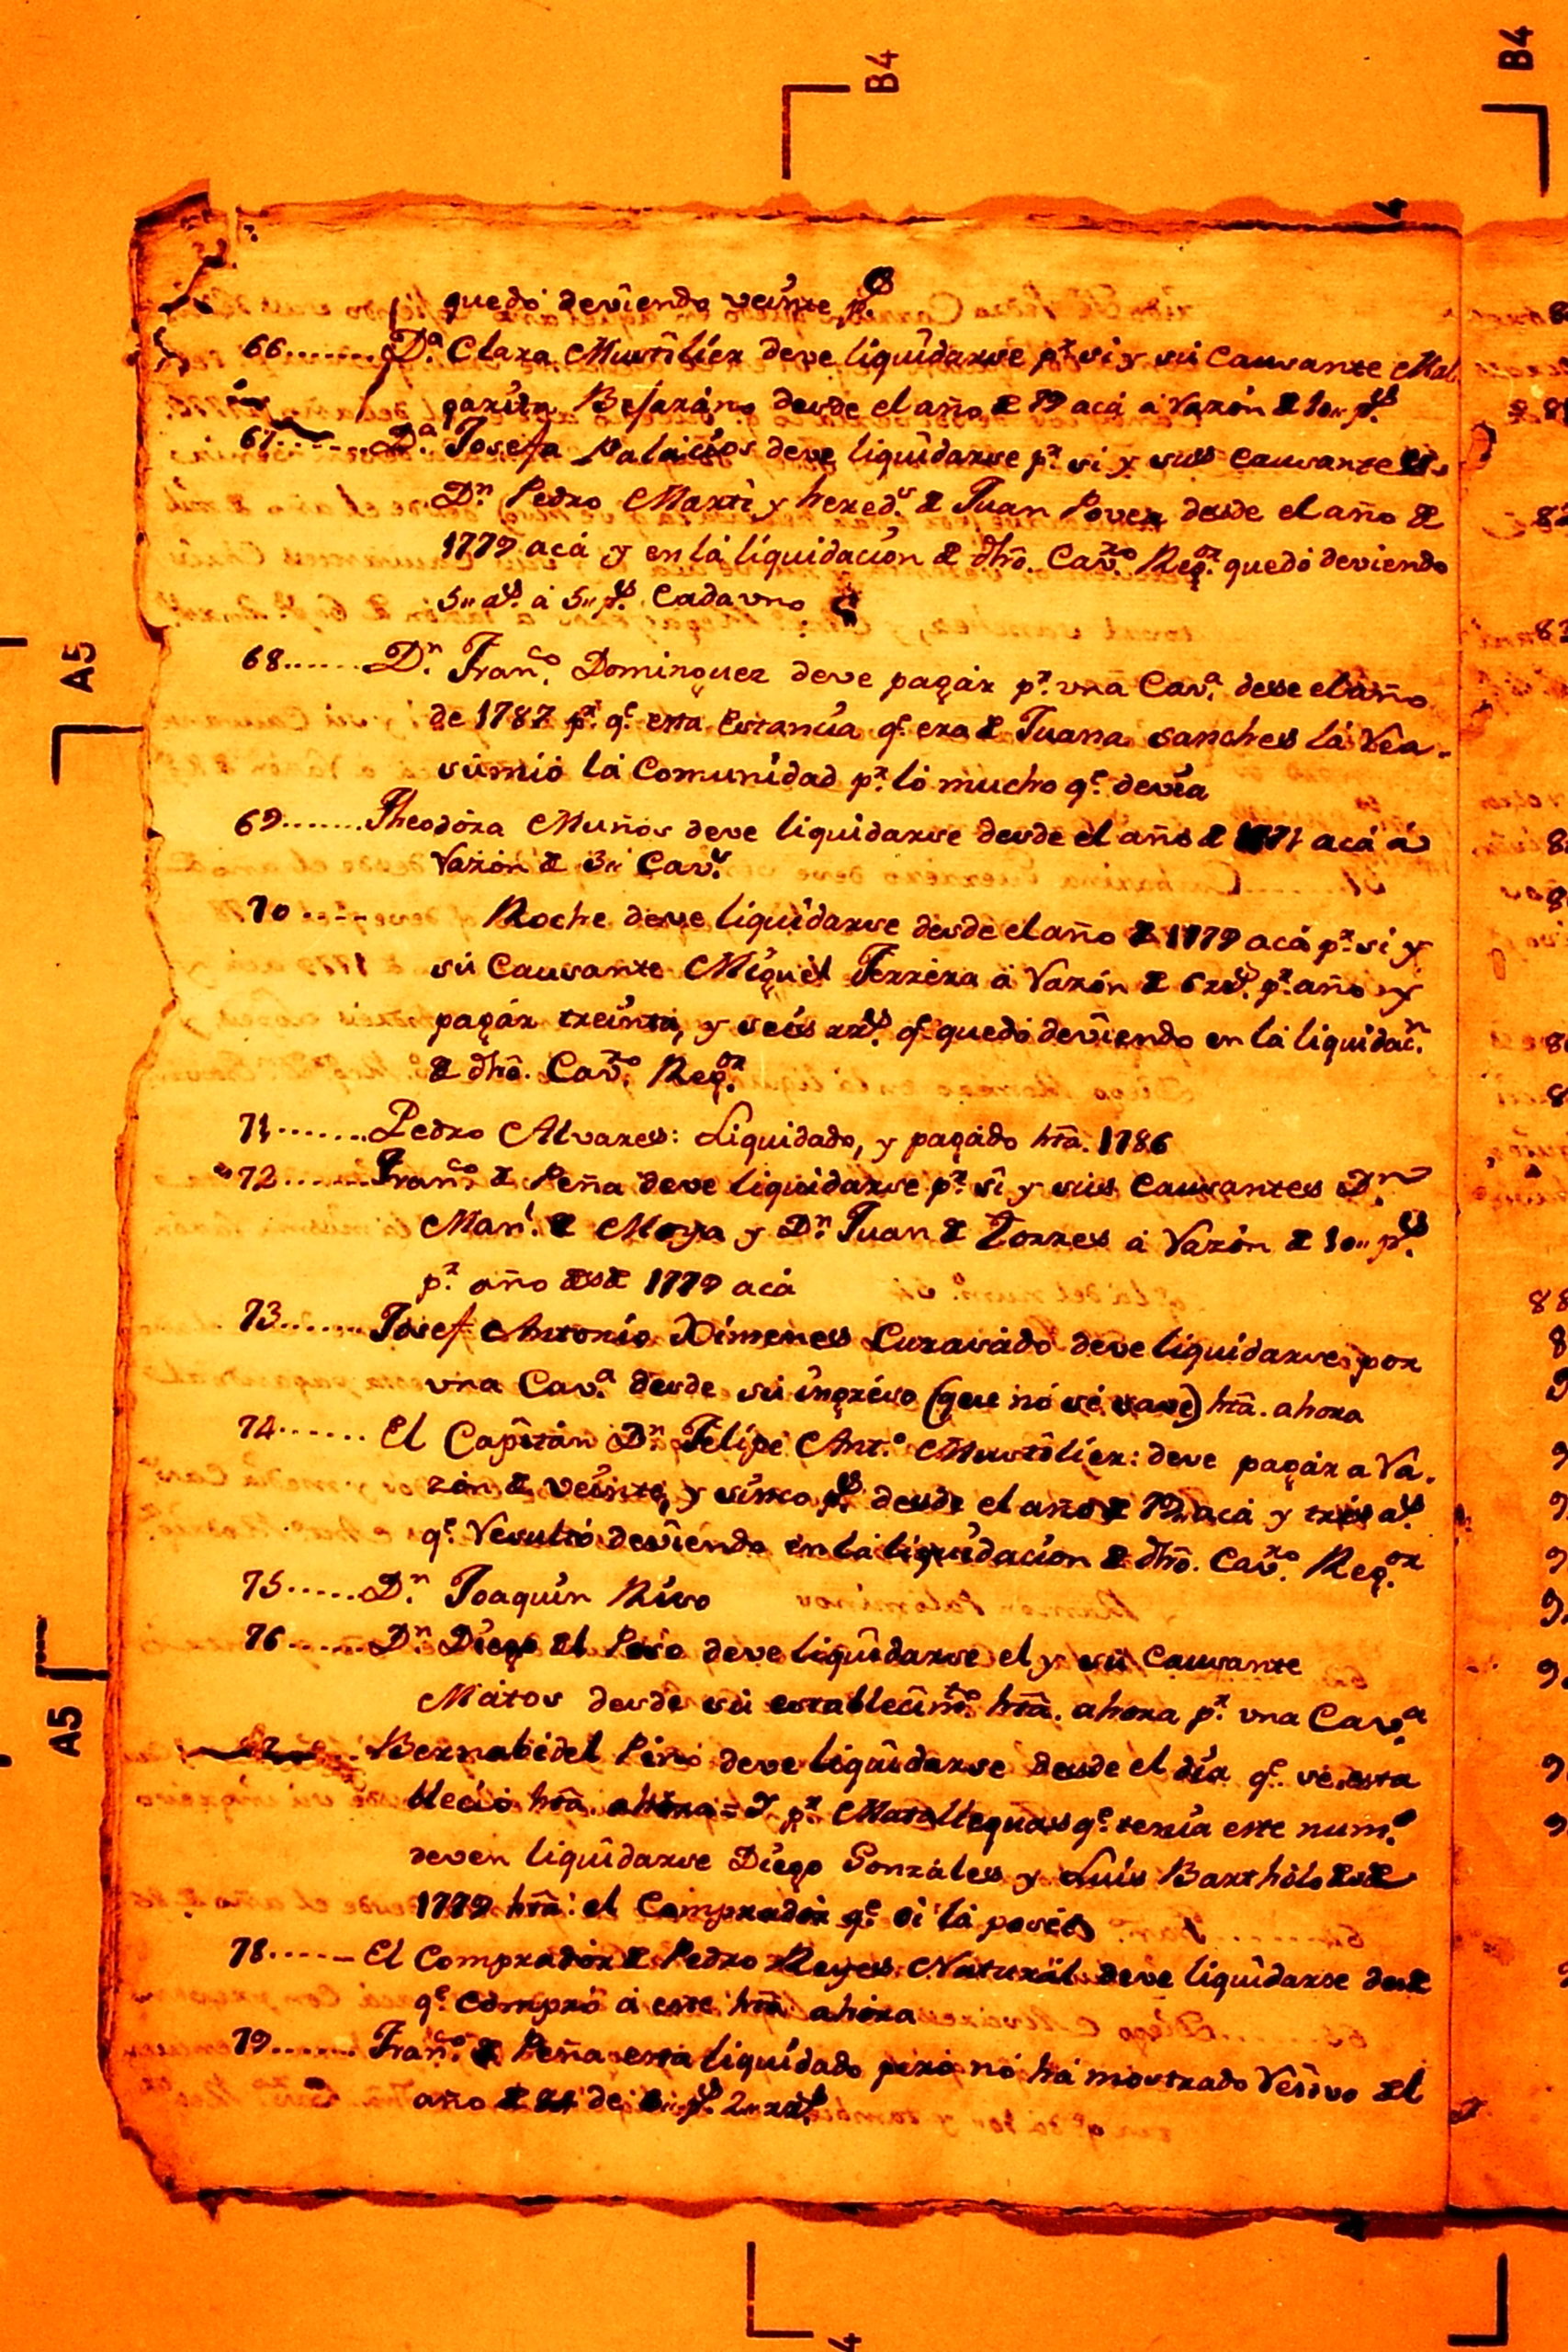 B4
B4
quedó deviendo veinte p.s
66....... D.a Clara Mustilier deve liquidarse p.r si y su Causante Mar
garita Bejaráno desde el año de 79 acá á razón de 10,, p.s
67....... D.a Josefa Palacios deve liquidarse p.r si y sus Causantes
D.n Pedro Martì y hered.s de Juan Pover desde el año de
1779 acá y en la liquidación de dhô. Cav.ro Reg.or quedó deviendo
5,, a.s á 5,, p.s Cada uno
68...... D.n Fran.co Dominguez deve pagár p.r una Cav.a desde el año
de 1787 p.r q.e esta Estancia q.e era de Juana sanches la rea-
sumió la Comunidad p.r lo mucho q.e devía
69....... Theodóra Muños deve liquidarse desde el año de acá á
razón de 3,, Cav.s
70...... Roche deve liquidarse desde el año de 1779 acá p.r si y
su Causante Miguél Ferrera á razón de 6 r.s p.r año y
pagár treinta, y seis rr.s q.e quedó deviendo en la liquidac.n
de dhô. Cav.ro Reg.or
71....... Pedro Alvares: Liquidado, y pagádo htâ. 1786
72....... Fran.co de Peña deve liquidarse p.r si y sus Causantes D.n
Man.l de Moya y D.n Juan de Torres á razón de 10,, p.s
p.r año desde 1779 acá
73....... Josef Antonio Ximenes Curasádo deve liquidarse por
una Cav.a desde su ingréso (que nó sé save) htâ. ahora
74...... El Capitán D.n Felipe Ant.o Mustilier: deve pagár a ra-
zón de veinte, y sinco p.s desde el año de 79 acá y tres a.s
q.e resultó deviendo en la liquidacion de dhô. Cav.ro Reg.or
75..... D.n Joaquín Riso
76...... D.n Diego del Poso deve liquidarse el y su Causante
Mátos desde su establecim.to htâ. ahora p.r una Cav.a
Bernabé del Pino deve liquidarse desde el día q.e se esta
bleció htâ. ahora = Y p.r Matalleguas q.e tenía este num.o
deven liquidarse Diego Gonzáles y Luis Barthólo desde
1779 htâ. el Comprador q.e oi la posée
78...... El Comprador de Pedro Reyes Naturál deve liquidarse desde
q.e compró á este htâ. ahora
79....... Fran.co de Peña está liquidado peró nó há mostrado resivo del
año de de p.s 2,, rr.s
A5
A5